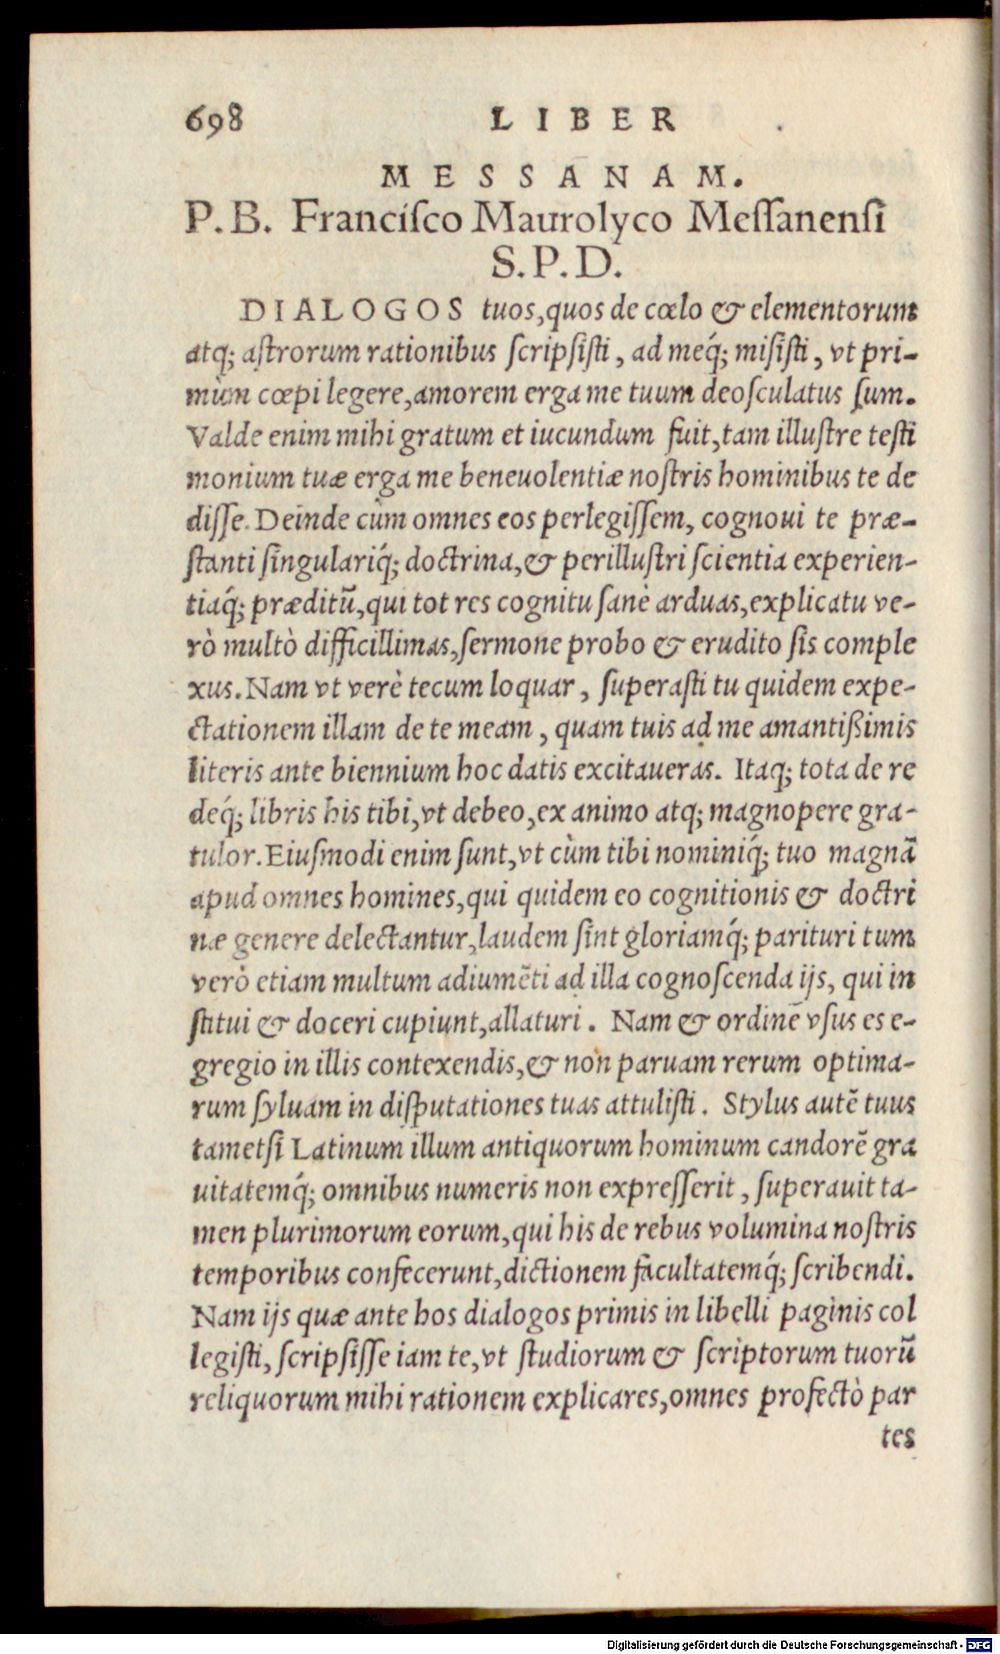 698 LIBER
MESSANAM.
P.B. Franciſco Maurolyco Meſſanenſi
S.P.D.
DIALOGOS tuos, quos de cœlo & elementorum
atq; aſtrorum rationibus ſcripſiſti, ad meq́; miſiſti, vt pri-
mùm cœpi legere, amorem erga me tuum deoſculatus ſum.
Valde enim mihi gratum et iucundum fuit, tam illuſtre teſti
monium tuæ erga me beneuolentiæ noſtris hominibus te de
diſſe. Deinde cùm omnes eos perlegiſſem, cognoui te præ-
ſtanti ſingulariq́; doctrina, & perilluſtri ſcientia experien-
tiaq́; præditũ, qui tot res cognitu ſanè arduas, explicatu ve-
rò multò difficillimas, ſermone probo & erudito ſis comple
xus. Nam vt verè tecum loquar, ſuperaſti tu quidem expe-
ctationem illam de te meam, quam tuis ad me amantißimis
literis ante biennium hoc datis excitaueras. Itaq; tota de re
deq́; libris his tibi, vt debeo, ex animo atq; magnopere gra-
tulor. Eiuſmodi enim ſunt, vt cùm tibi nominiq́; tuo magnã
apud omnes homines, qui quidem eo cognitionis & doctri
næ genere delectantur, laudem ſint gloriamq́; parituri tum
verò etiam multum adiumẽti ad illa cognoſcenda ijs, qui in
ſtitui & doceri cupiunt, allaturi. Nam & ordinẽ vſus es e-
gregio in illis contexendis, & non paruam rerum optima-
rum ſyluam in diſputationes tuas attuliſti. Stylus autẽ tuus
tametſi Latinum illum antiquorum hominum candorẽ gra
uitatemq́; omnibus numeris non expreſſerit, ſuperauit ta-
men plurimorum eorum, qui his de rebus volumina noſtris
temporibus confecerunt, dictionem facultatemq́; ſcribendi.
Nam ijs quæ ante hos dialogos primis in libelli paginis col
legiſti, ſcripſiſſe iam te, vt ſtudiorum & ſcriptorum tuorũ
reliquorum mihi rationem explicares, omnes profectò par
tes
Digitalisierung gefördert durch die Deutsche Forschungsgemeinschaft - DFG